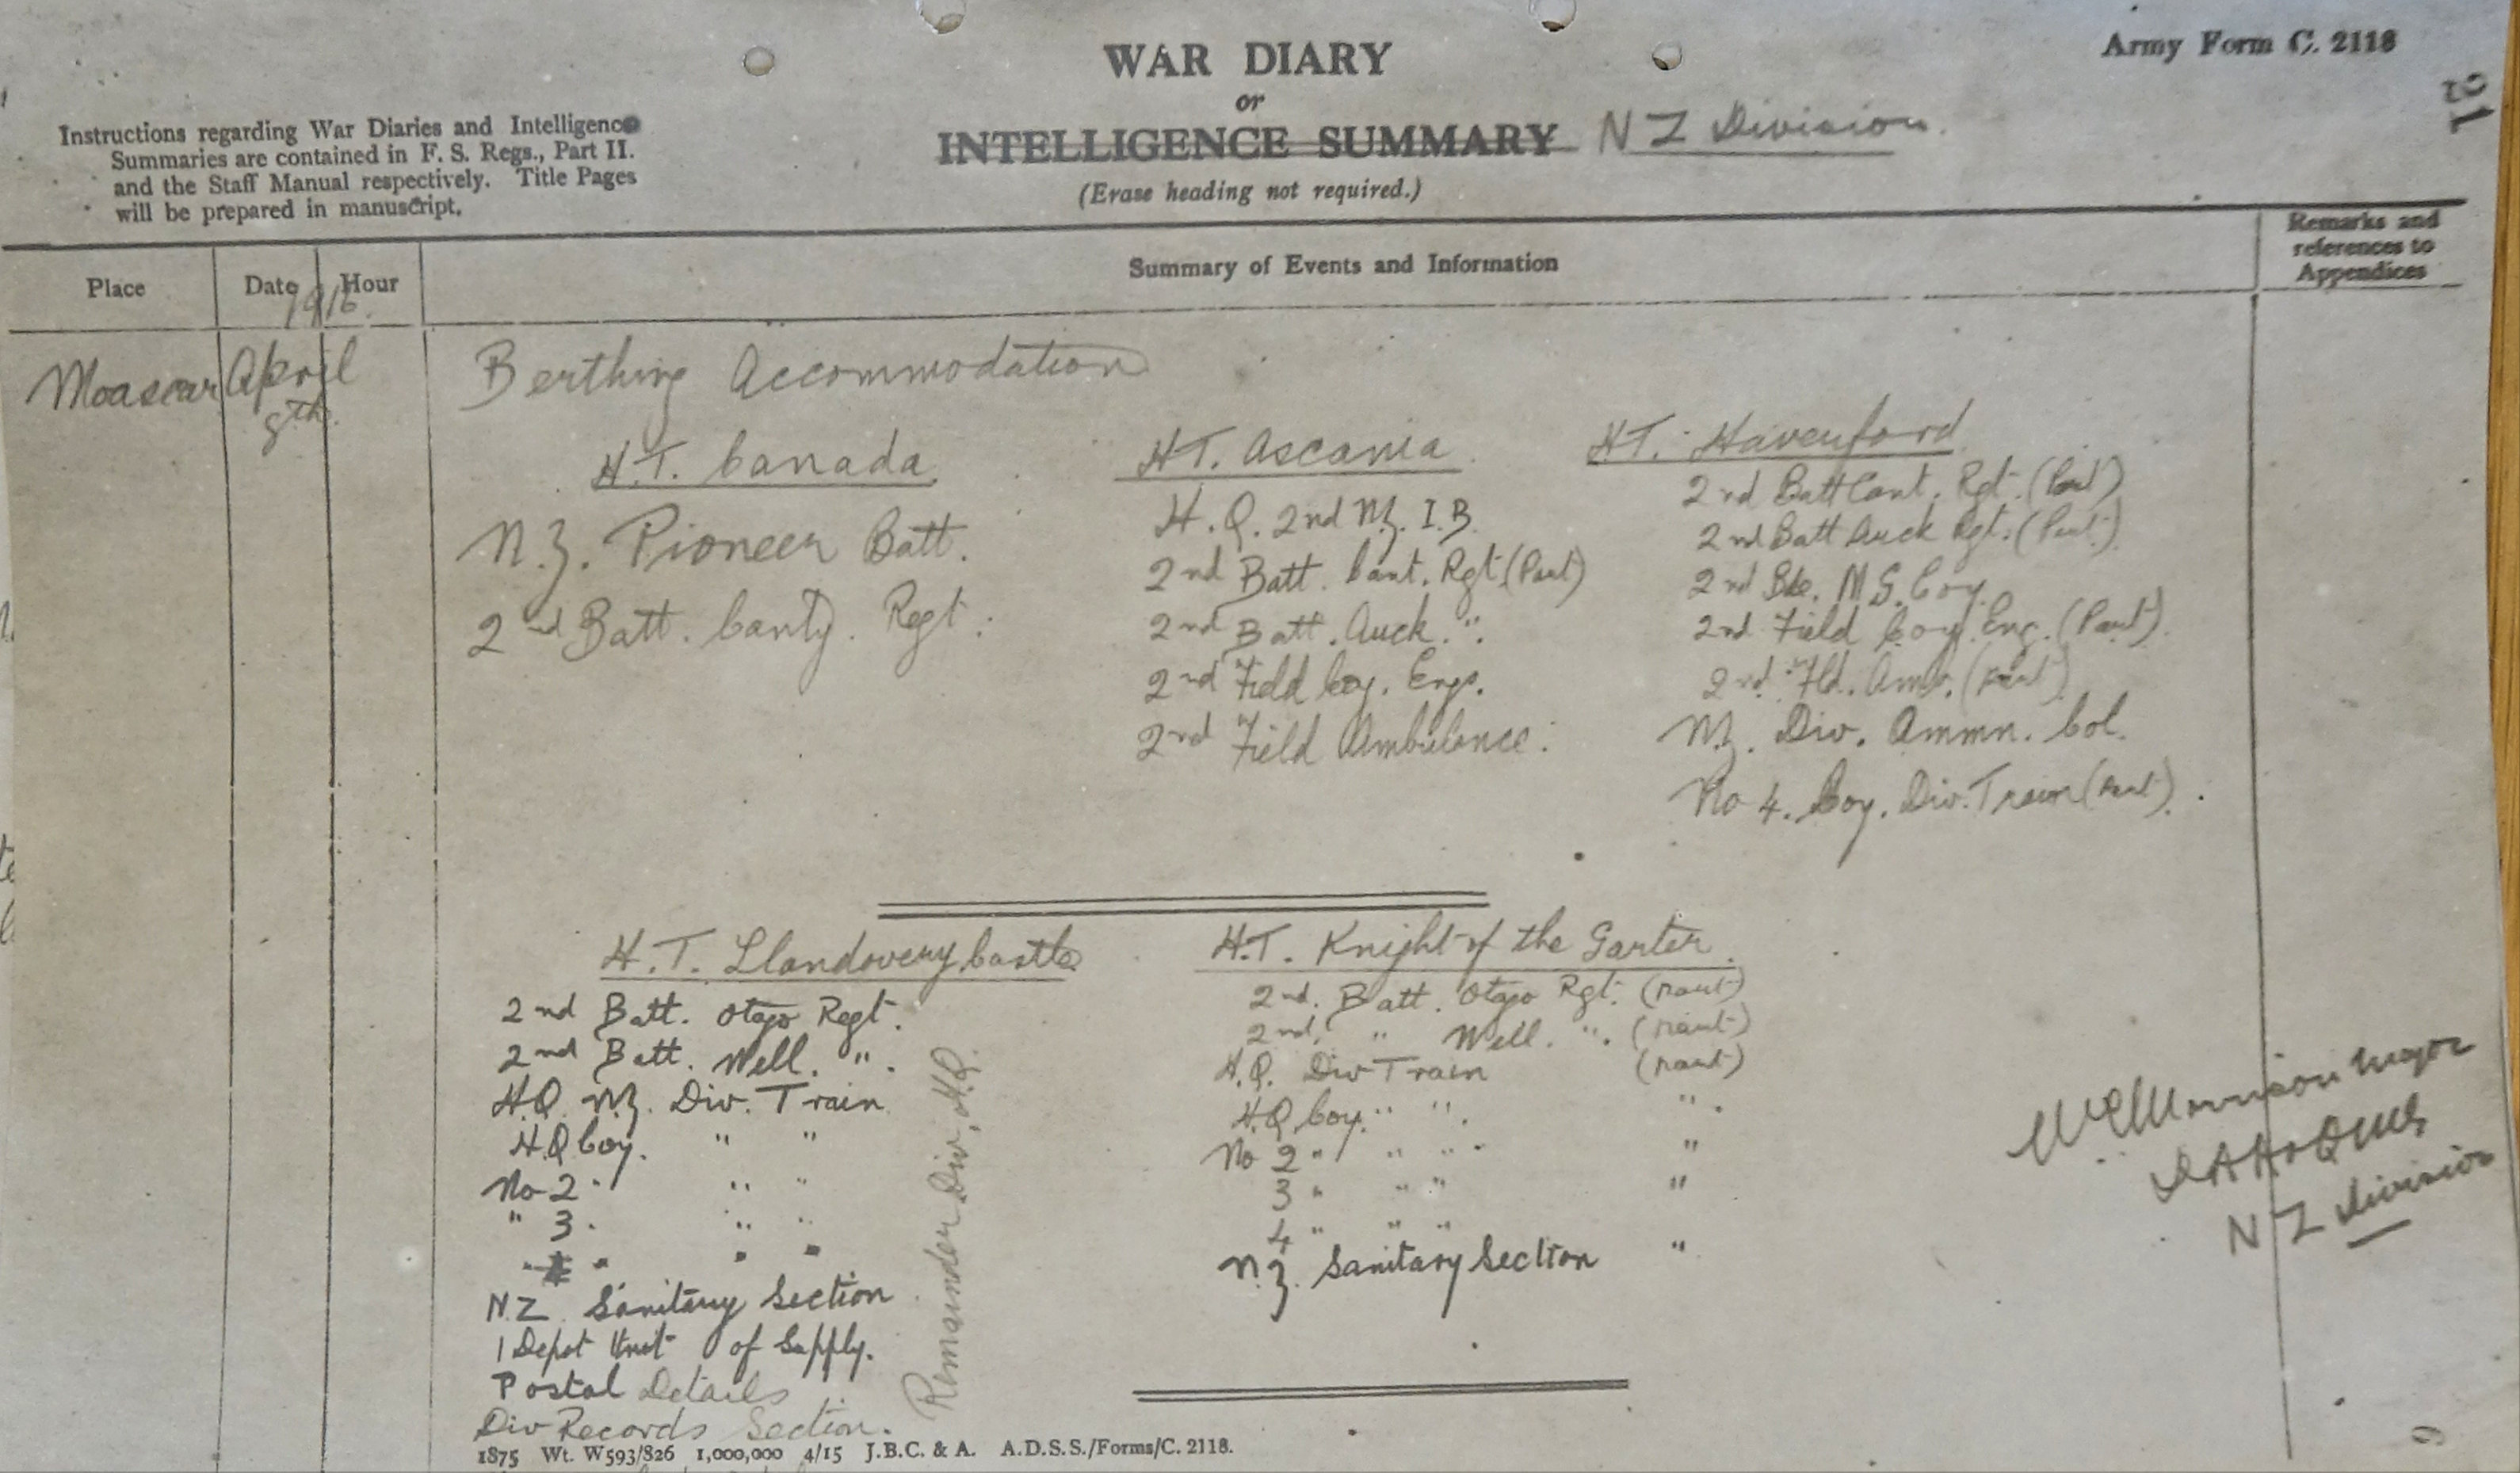 Army Form C. 2118
21
WAR DIARY
or
INTELLIGENCE SUMMARY N Z Division.
(Erase heading not required.)
Instructions regarding War Diaries and Intelligence
Summaries are contained in F. S. Regs., Part II.
and the Staff Manual respectively. Title Pages
will be prepared in manuscript.
Place
Date
Hour
1916.
Summary of Events and Information
Remarks and
references to
Appendices
Moascar
April
8th.
Berthing Accommodation
H.T. Canada.
N.Z. Pioneer Batt.
2nd Batt. Canty. Regt.
H.T. Ascania
H.Q. 2nd N.Z. I.B.
2nd Batt. Cant. Rgt (Part)
2nd Batt. Auck. ".
2nd Field Coy. Engs.
2nd Field Ambulance.
H.T. Haverford
2nd Batt Cant. Rgt. (Part)
2nd Batt Auck Rgt. (Part)
2nd Bde. M.G. Coy.
2nd Field Coy. Eng. (Part)
2nd Fld. Amb. (Part)
N.Z. Div. Ammn. Col.
No 4. Coy. Div. Train (Part).
H.T. Llandovery Castle
2nd Batt. Otago Regt.
2nd Batt. Well. ".
H.Q. N.Z. Div. Train
H.Q Coy. " "
No 2 " " "
" 3. " "
" " " "
N.Z. Sanitary Section
1 Depot Unit of Supply.
Postal Details
Div Records Section.
Remainder Div. H.Q.
H.T. Knight of the Garter.
2nd. Batt. Otago Rgt. (part)
2nd. " Well. ". (part)
H.Q. Div Train (part)
H.Q. Coy. " " ".
No 2 " " " "
3 " " " "
4 " " "
N.Z. Sanitary Section "
Major
DAA&QMG
N Z Division
1875 Wt. W593/826 1,000,000 4/15 J.B.C. & A. A.D.S.S./Forms/C. 2118.